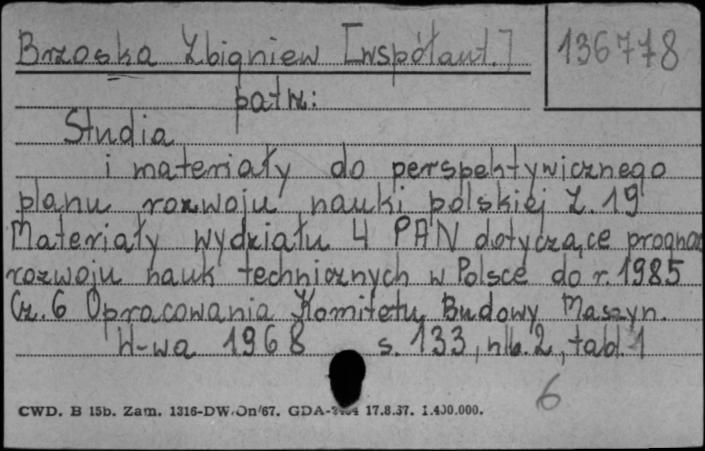 Brzoska Zbigniew [współaut.]
136778
patrz:
Studia
i materiały do perspektywicznego
planu rozwoju nauki polskiej Z. 19
Materiały wydziału 4 PAN dotyczące prognoz
rozwoju nauk technicznych w Polsce do r. 1985
Cz. 6 Opracowania Komitetu Budowy Maszyn.
W-wa 1968 s. 133, nlb. 2, tabl. 1
6
CWD. B 15b. Zam. 1316-DW/On/67. 17.8.37. 1.400.000.